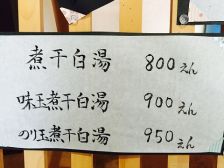 煮干白湯 800えん
味玉煮干白湯 900えん
のり玉煮干白湯 950えん